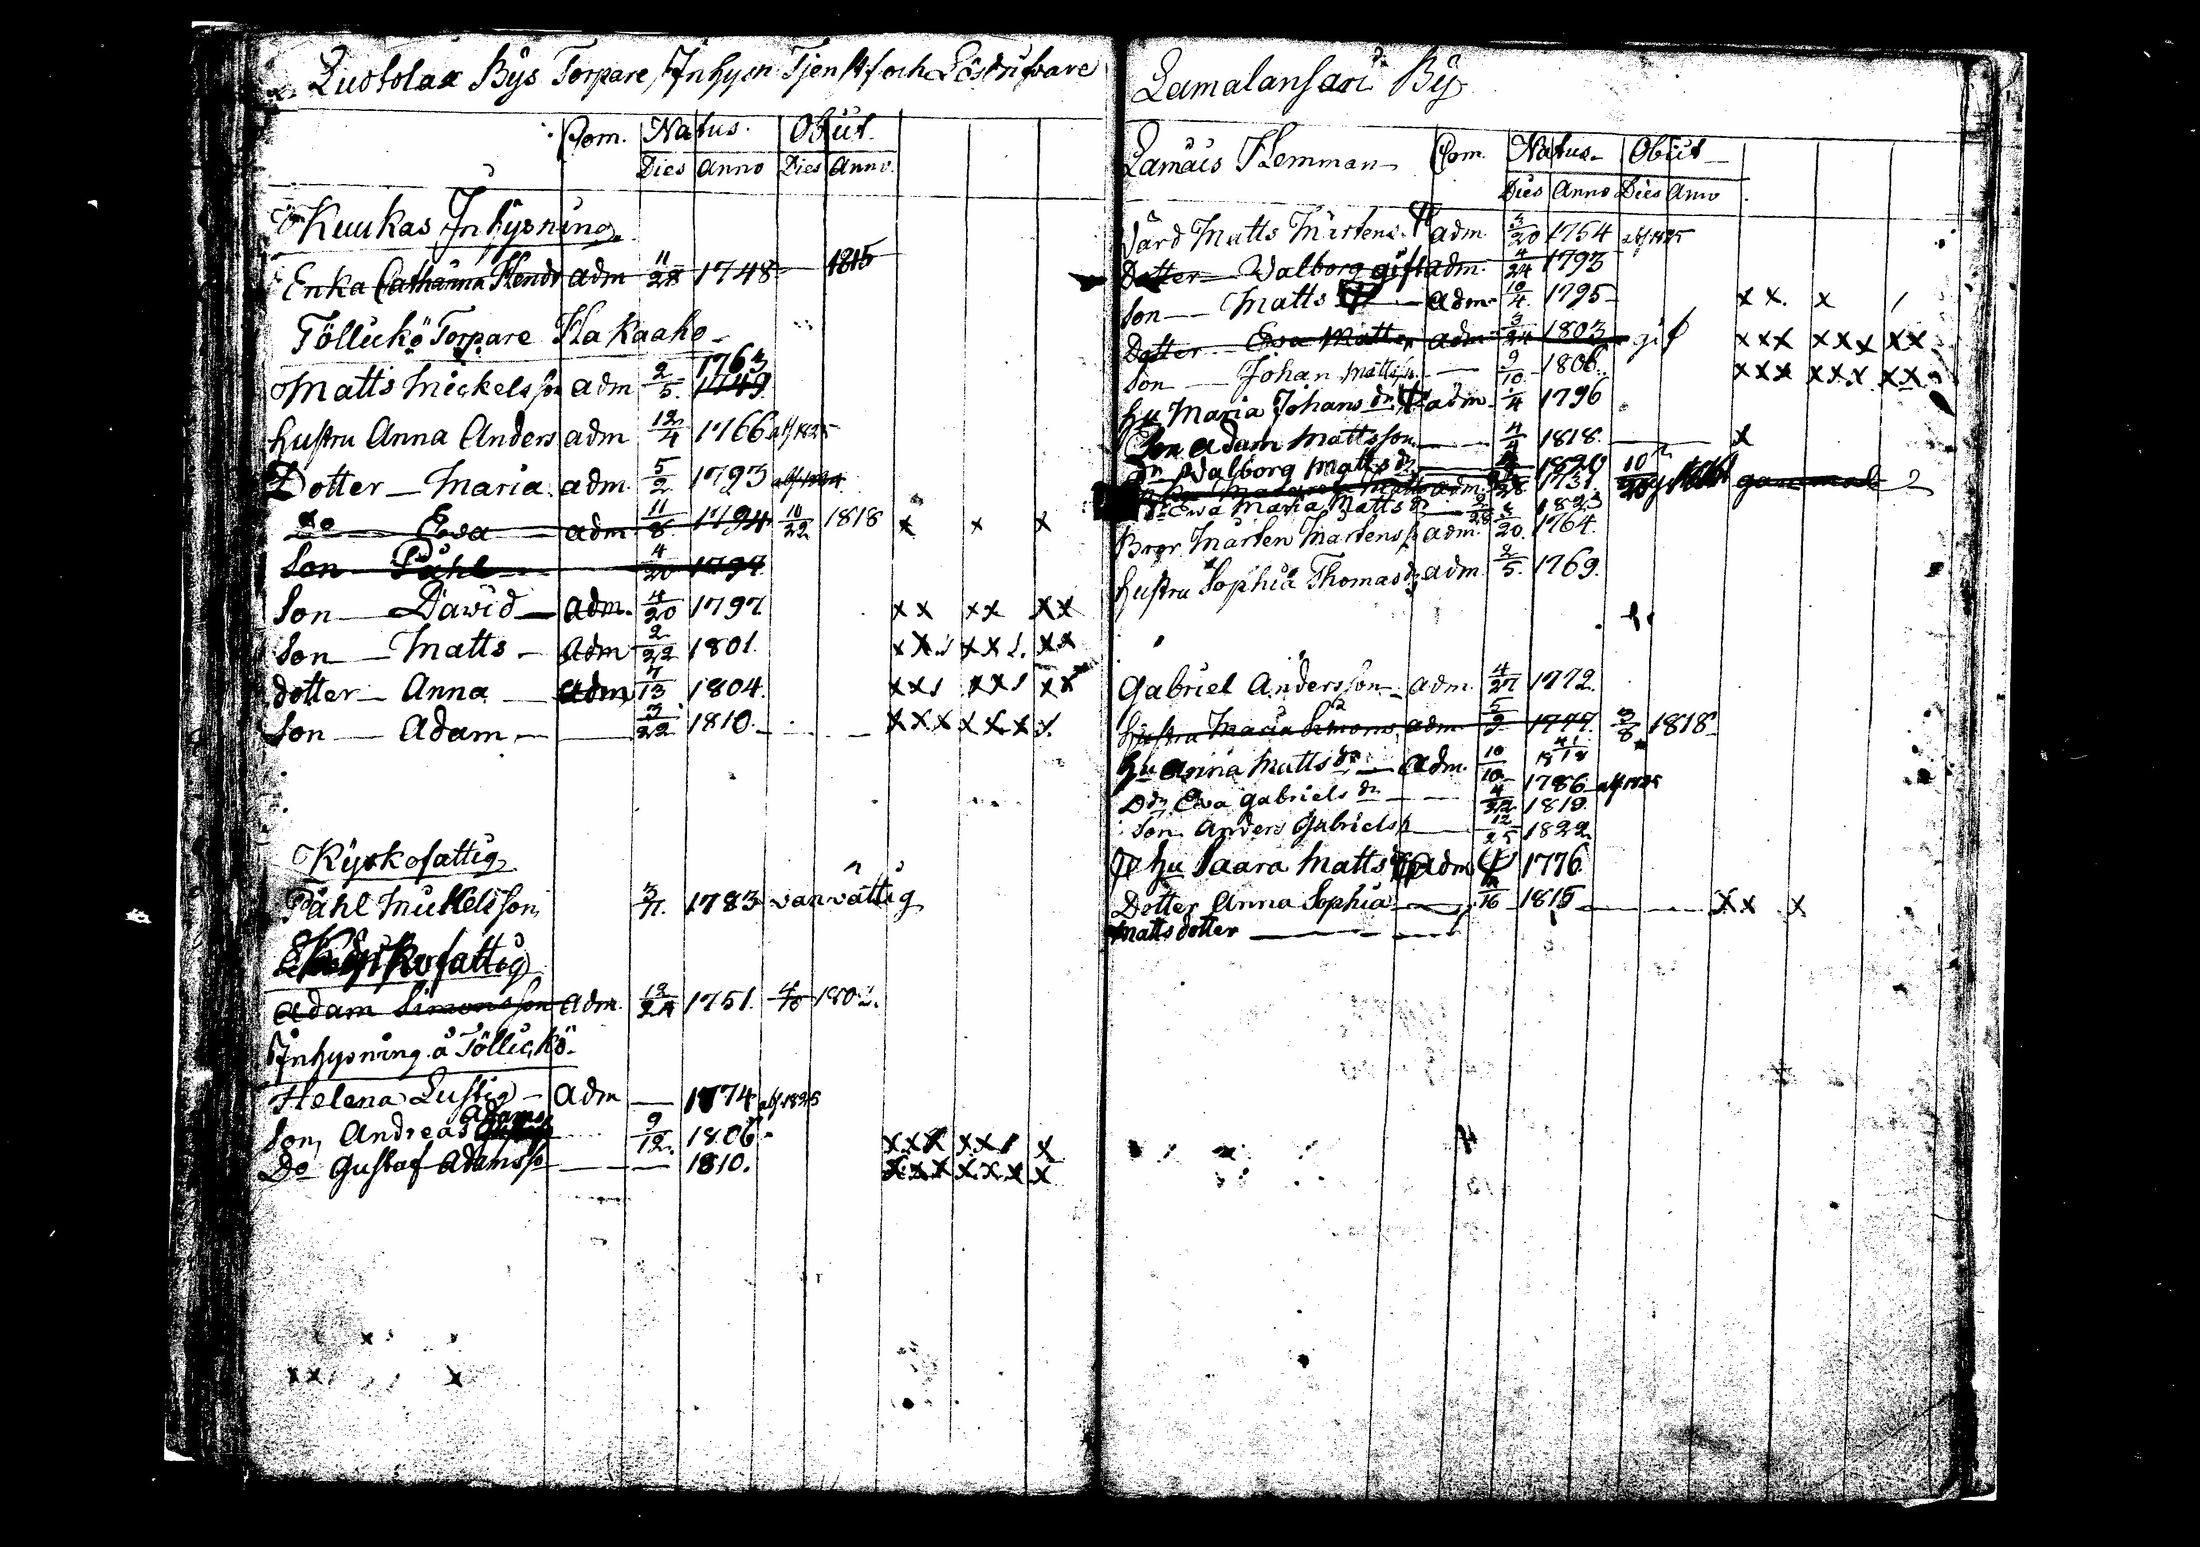 Luotolax Bÿs Torpare, Inhysn Tjenstf och Löstrifvare
Com. Natus. Obiit.
Dies Anno Dies Anno.
Kuukas Inhÿsning
Enka Catharina Hendr adm 11/28 1748 1815
Töllickö Torpare
Matts Mickelsson adm 2/5. 1763 1749
hustru Anna Anders adm 12/4 1766 abs 1825
Dotter — Maria. adm. 5/2 1793
Do Ewa adm 11/8. 1794 10/22 1818 x x x
Son Påhl 4/20 1797
Son — Dawid — adm. 4/20 1797 xx xx xx
Son — Matts — adm 2/22 1801. xx xx xx
dotter — Anna adm 7/13 1804. xx xx xx
Son — Adam — 3/22 1810. xxx xxx x
Kÿrkofattig
Påhl Mickelsson 3/11. 1783 vanvättig
Kÿrkofattig
Adam Simonsson adm. 12/24 1751. 4/10
Inhysning å Töllickö.
Helena Lustig — adm — 1774 abs. 1825
Son, Andreas Adams 9/12. 1806. xxx xx x
Do Gustaf Adamsso — 1810. xxx xxx x
Lamalansari Bÿ
Lamais Hemman Com. Natus Obiit
Dies Anno Dies Anno
Vård Matts Mårtens. adm 3/20 1764 abs 1825
Dotter — Walborg gift adm. 4/24 1793
Son — Matts adm. 10/4. 1795 xx. x
Dotter Ewa Matts adm 3/24 1803 gif xxx xxx xx
Son — Johan Matts 9/10 1806. xxx xxx xx
hu Maria Johans dr adm. 1/4 1796
Son Adam Mattsson 4/4 1818. x
Dr Walborg Matts dr 1820
adm. 28 1731. gammal
Dr Ewa Maria Matts dr 2/28 1823
Bror Mårten Mårtens adm. 3/20. 1764.
hustru Sophia Thomas dr adm 2/5. 1769.
Gabriel Andersson adm. 4/27 1772.
hustru Maria Simons adm 5/9 1777. 3/8 1818
hu Anna Matts dr — adm. 10/10 1786 abs 1825
Dr Ewa Gabriels dr 4/22 1819.
Son Anders Gabrielss 12/25 1822
hu Saara Matts adm 1776
Dotter Anna Sophia 16 1815 xx x
Mattsdotter